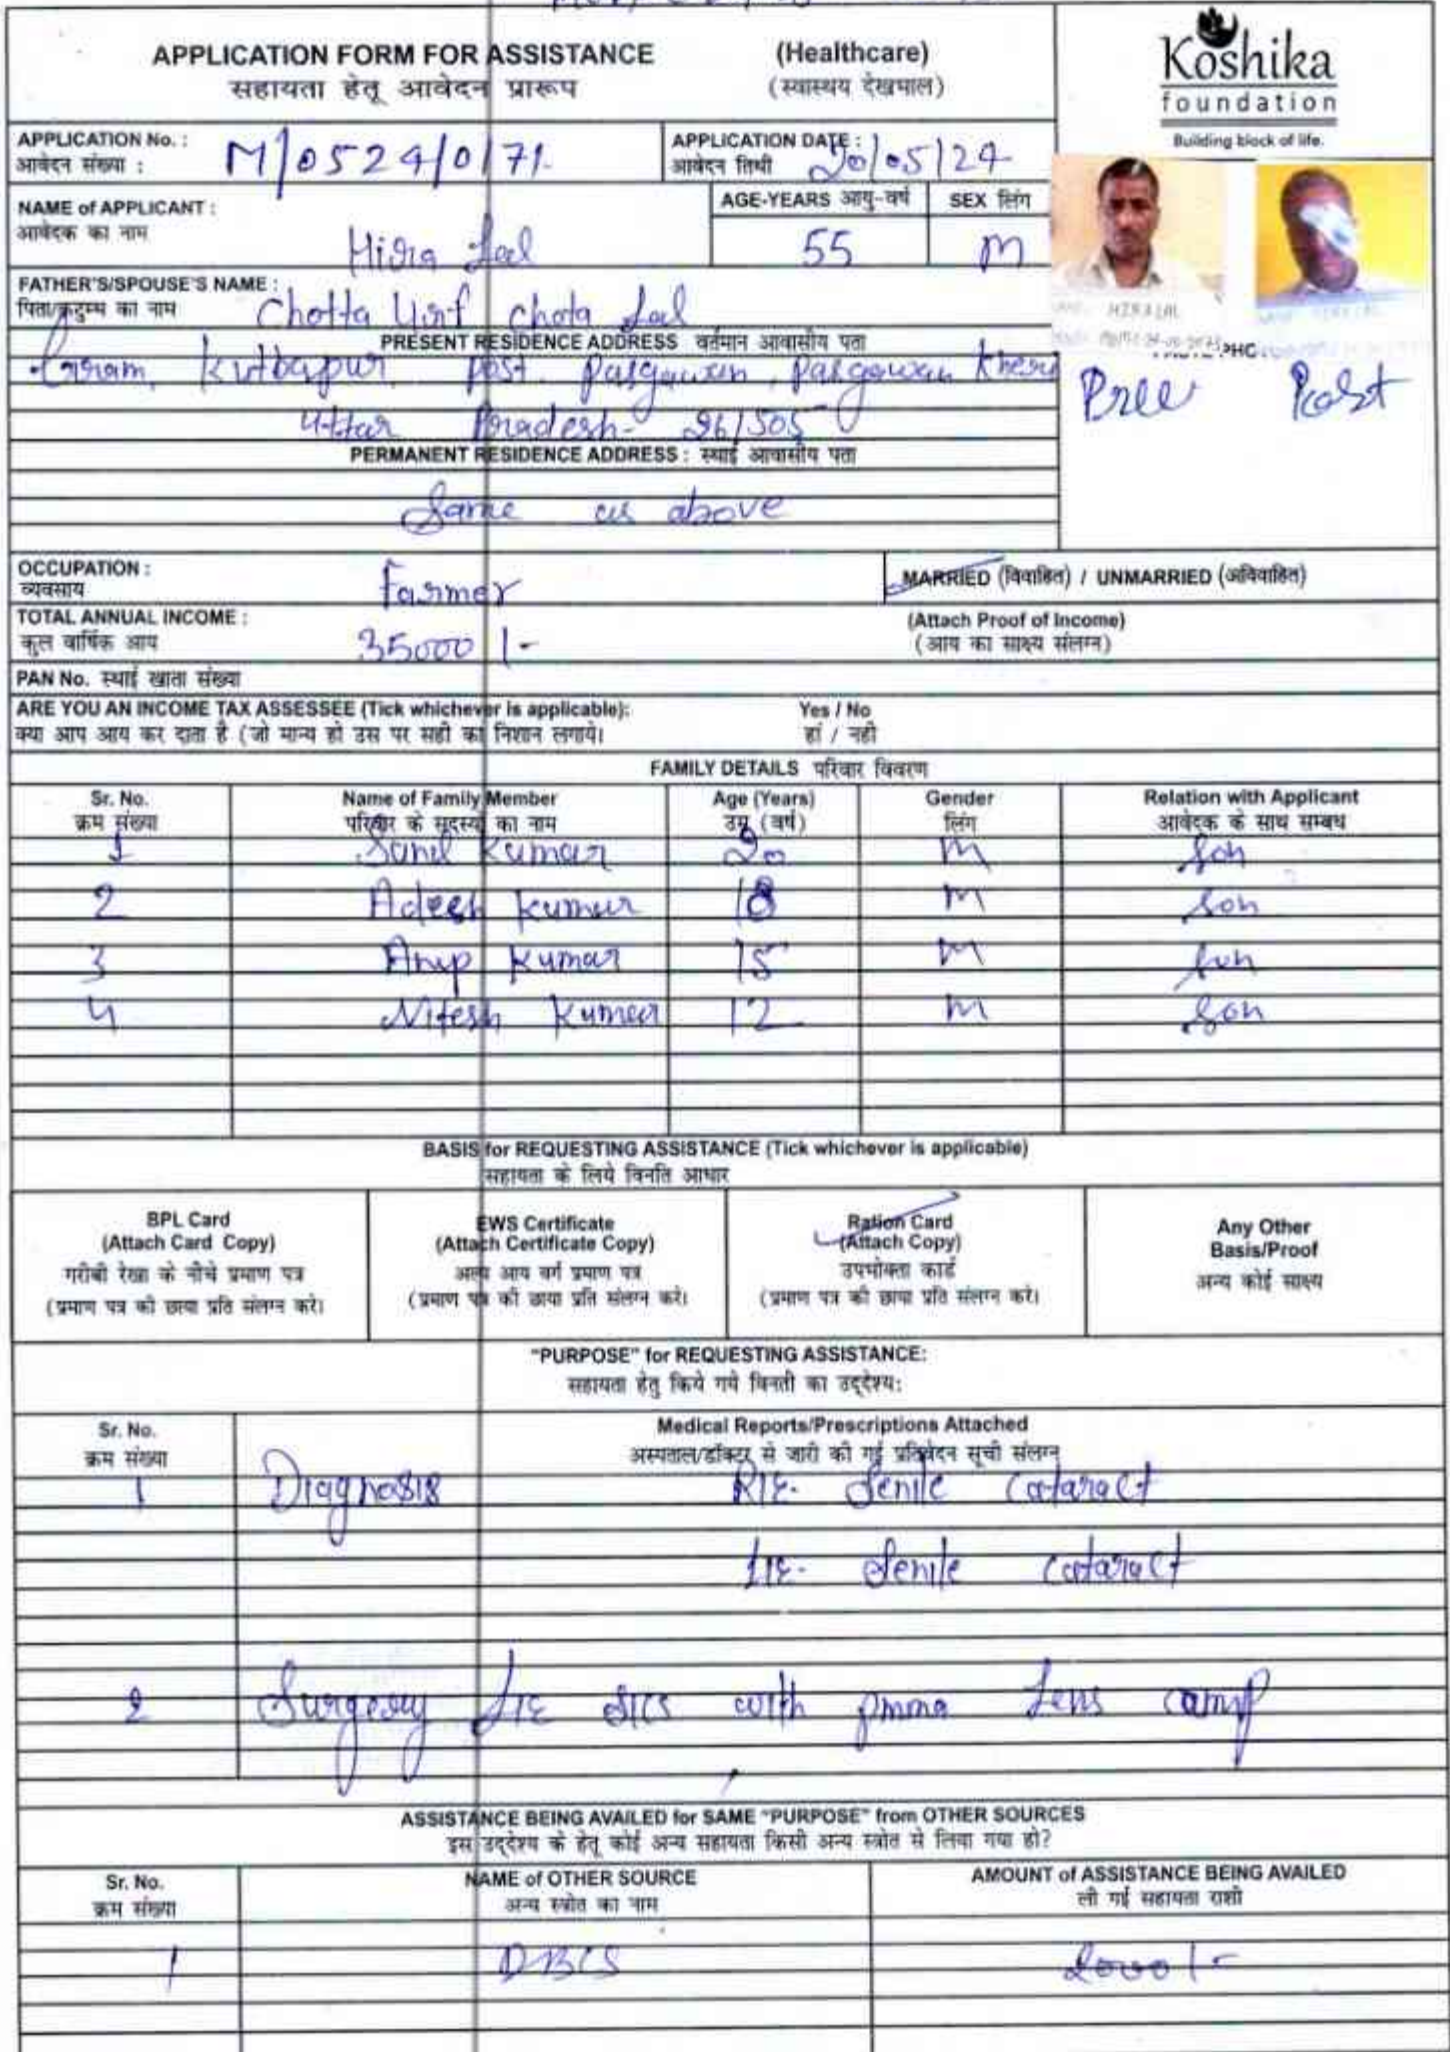 APPLICATION FORM FOR ASSISTANCE (Healthcare)
सहायता हेतू आवेदन प्रारूप (स्वास्थय देखभाल)
Koshika
foundation
Building block of life.
APPLICATION No. : M/0524/0171
आवेदन संख्या :
APPLICATION DATE : 20/05/24
आवेदन तिथी
NAME of APPLICANT : Hira Lal
आवेदक का नाम
AGE-YEARS आयु-वर्ष 55
SEX लिंग M
FATHER'S/SPOUSE'S NAME : Chotta Urf Chota Lal
पिता/कुटुम्ब का नाम
HIRALAL
PRESENT RESIDENCE ADDRESS वर्तमान आवासीय पता
Gram, Kutbapur, Post. Pasgawan, Pasgawan Kheri
Uttar Pradesh- 261505
Pree Post
PERMANENT RESIDENCE ADDRESS : स्थाई आवासीय पता
Same as above
OCCUPATION : Farmer
व्यवसाय
MARRIED (विवाहित) / UNMARRIED (अविवाहित)
TOTAL ANNUAL INCOME : 35000/-
कुल वार्षिक आय
(Attach Proof of Income)
(आय का साक्ष्य संलग्न)
PAN No. स्थाई खाता संख्या
ARE YOU AN INCOME TAX ASSESSEE (Tick whichever is applicable): Yes / No
क्या आप आय कर दाता है (जो मान्य हो उस पर सही का निशान लगाये। हां / नही
FAMILY DETAILS परिवार विवरण
Sr. No. Name of Family Member Age (Years) Gender Relation with Applicant
क्रम संख्या परिवार के सदस्यों का नाम उम्र (वर्ष) लिंग आवेदक के साथ सम्बध
1 Sunil Kumar 20 M Son
2 Adesh Kumar 18 M Son
3 Anup Kumar 15 M Son
4 Nitesh Kumar 12 M Son
BASIS for REQUESTING ASSISTANCE (Tick whichever is applicable)
सहायता के लिये विनति आधार
BPL Card
(Attach Card Copy)
गरीबी रेखा के नीचे प्रमाण पत्र
(प्रमाण पत्र की छाया प्रति संलग्न करे।
EWS Certificate
(Attach Certificate Copy)
अल्प आय वर्ग प्रमाण पत्र
(प्रमाण पत्र की छाया प्रति संलग्न करे।
Ration Card
(Attach Copy)
उपभोक्ता कार्ड
(प्रमाण पत्र की छाया प्रति संलग्न करे।
Any Other
Basis/Proof
अन्य कोई साक्ष्य
"PURPOSE" for REQUESTING ASSISTANCE:
सहायता हेतु किये गये विनती का उद्देश्य:
Sr. No. Medical Reports/Prescriptions Attached
क्रम संख्या अस्पताल/डॉक्टर से जारी की गई प्रतिवेदन सूची संलग्न
1 Diagnosis R/E- Senile Cataract
L/E- Senile Cataract
2 Surgery L/E SICS with pmma Lens camp
ASSISTANCE BEING AVAILED for SAME "PURPOSE" from OTHER SOURCES
इस उद्देश्य के हेतू कोई अन्य सहायता किसी अन्य स्त्रोत से लिया गया हो?
Sr. No. NAME of OTHER SOURCE AMOUNT of ASSISTANCE BEING AVAILED
क्रम संख्या अन्य स्त्रोत का नाम ली गई सहायता राशी
1 DBCS 2000/-